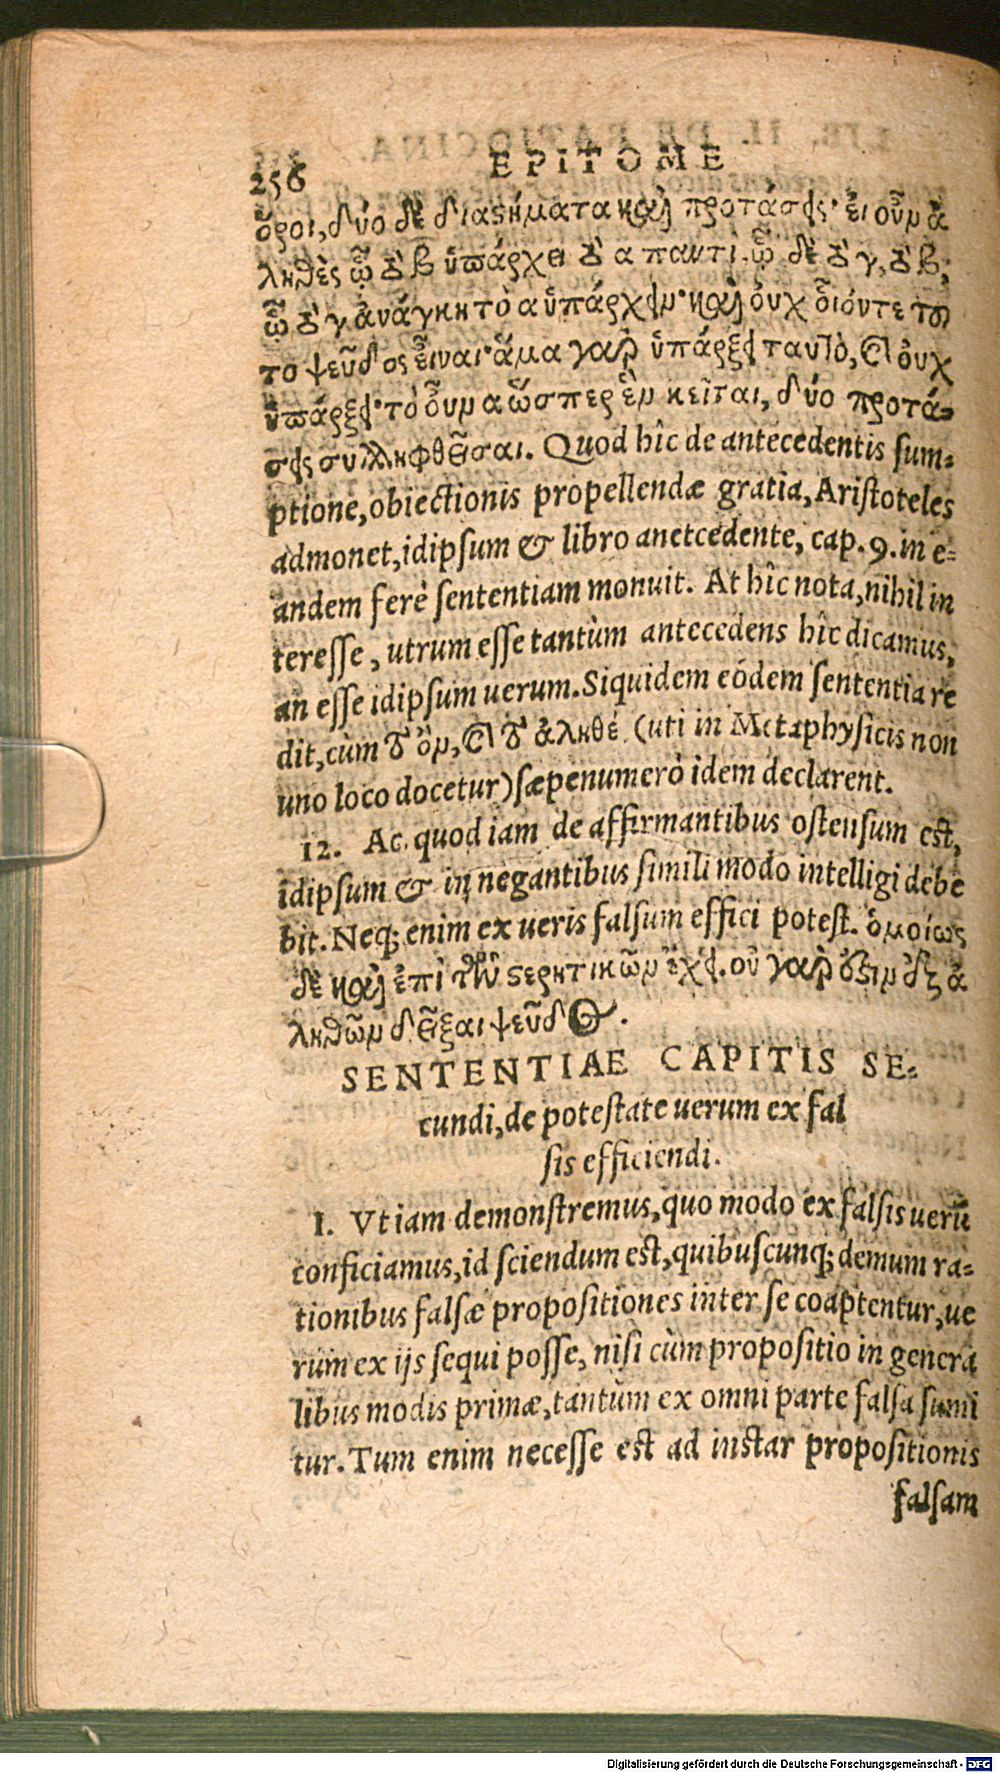 256 EPITOME
ὅροι, δύο δὲ διαστήματα καὶ προτάσεις· εἰ οὖν ἀ
ληθὲς ᾧ τὸ β ὑπάρχει τὸ α παντὶ. ᾧ δὲ τὸ γ, τὸ β,
ᾧ τὸ γ ἀνάγκη τὸ α ὑπάρχειν· καὶ οὐχ οἷόντε τοῦ
το ψεῦδος εἶναι· ἅμα γὰρ ὑπάρξει ταυτὸ, καὶ οὐχ
ὑπάρξει· τὸ οὖν α ὥσπερ ἓν κεῖται, δύο προτά-
σεις συλληφθεῖσαι. Quod hîc de antecedentis sum-
ptione, obiectionis propellendæ gratia, Aristoteles
admonet, idipsum & libro anetcedente, cap. 9. in e-
andem ferè sententiam monuit. At hîc nota, nihil in
teresse, utrum esse tantùm antecedens hîc dicamus,
an esse idipsum uerum. Siquidem eódem sententia re
dit, cùm τὸ ὂν, καὶ τὸ ἀληθὲ (uti in Metaphysicis non
uno loco docetur) sæpenumerò idem declarent.
12. Ac quod iam de affirmantibus ostensum est,
idipsum & in negantibus simili modo intelligi debe
bit. Neq; enim ex ueris falsum effici potest. ὁμοίως
δὲ καὶ ἐπὶ τῶν στερητικῶν ἔχει. οὐ γὰρ ἔστιν ἐξ ἀ
ληθῶν δεῖξαι ψεῦδος.
SENTENTIAE CAPITIS SE-
cundi, de potestate uerum ex fal
sis efficiendi.
1. Vt iam demonstremus, quo modo ex falsis uerũ
conficiamus, id sciendum est, quibuscunq; demum ra-
tionibus falsæ propositiones inter se coaptentur, ue
rum ex ijs sequi posse, nisi cùm propositio in genera
libus modis primæ, tantùm ex omni parte falsa sumi
tur. Tum enim necesse est ad instar propositionis
falsam
Digitalisierung gefördert durch die Deutsche Forschungsgemeinschaft - DFG